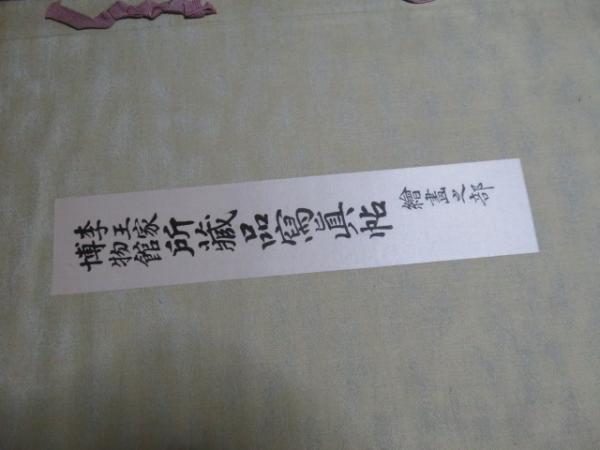 李王家
博物館
所藏品寫眞帖
繪畫之部